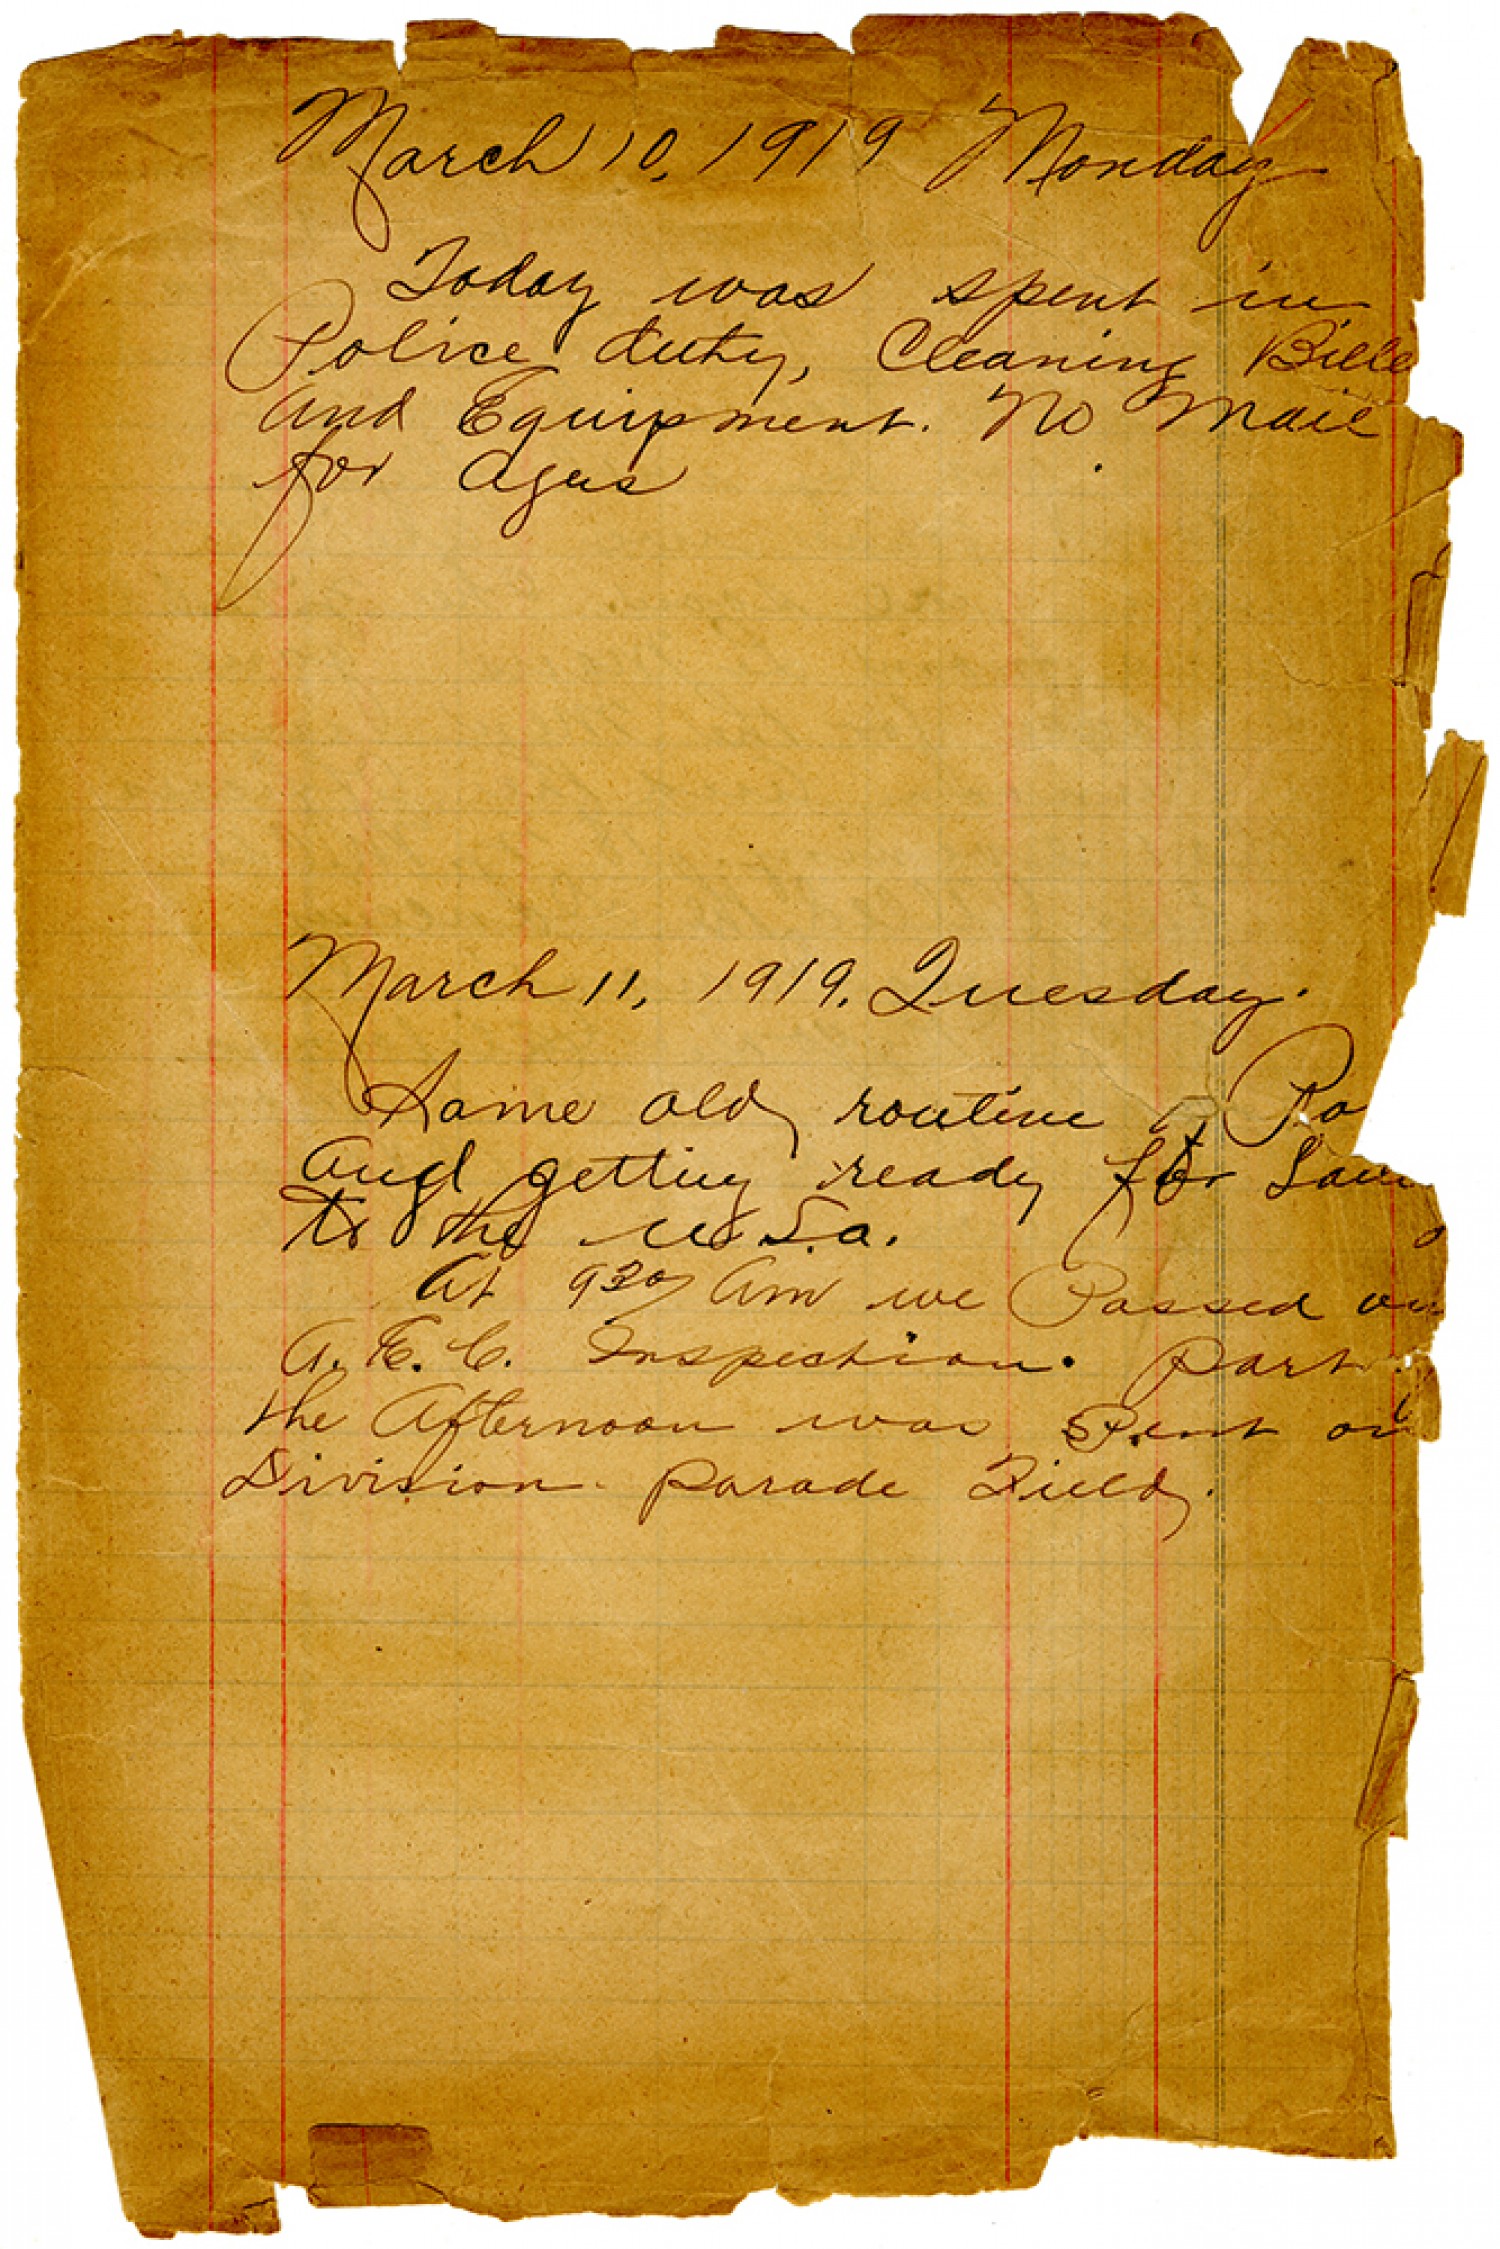 March 10, 1919 Monday
Today was spent in
Police duty, Cleaning Bille
and Equipment. No Mail
for ages
March 11, 1919. Tuesday.
Same old routine of Po
and getting ready for
to the U.S.a.
At 9 30 Am we Passed
A. E. C. Inspection. Part
the Afternoon was Spent on
Division Parade Field.